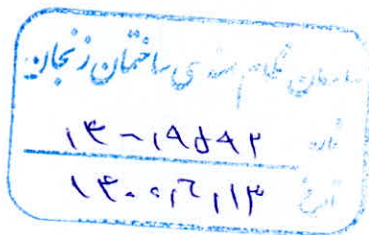 سازمان نظام مهندسی ساختمان زنجان
شماره ۱۴-۱۹۵۹۲
تاریخ ۱۴۰۰,۲,۱۳